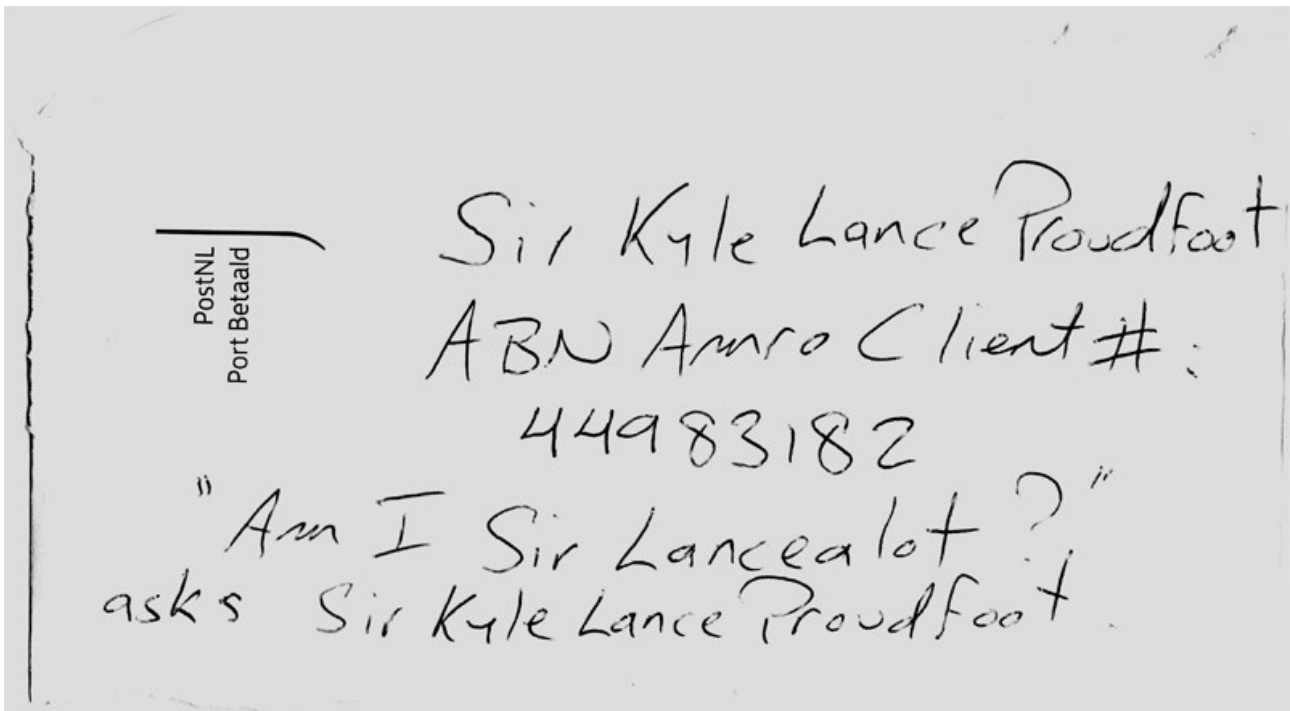 PostNL
Port Betaald
Sir Kyle Lance Proudfoot
ABN Amro Client #:
44983182
"Am I Sir Lancealot?"
asks Sir Kyle Lance Proudfoot.